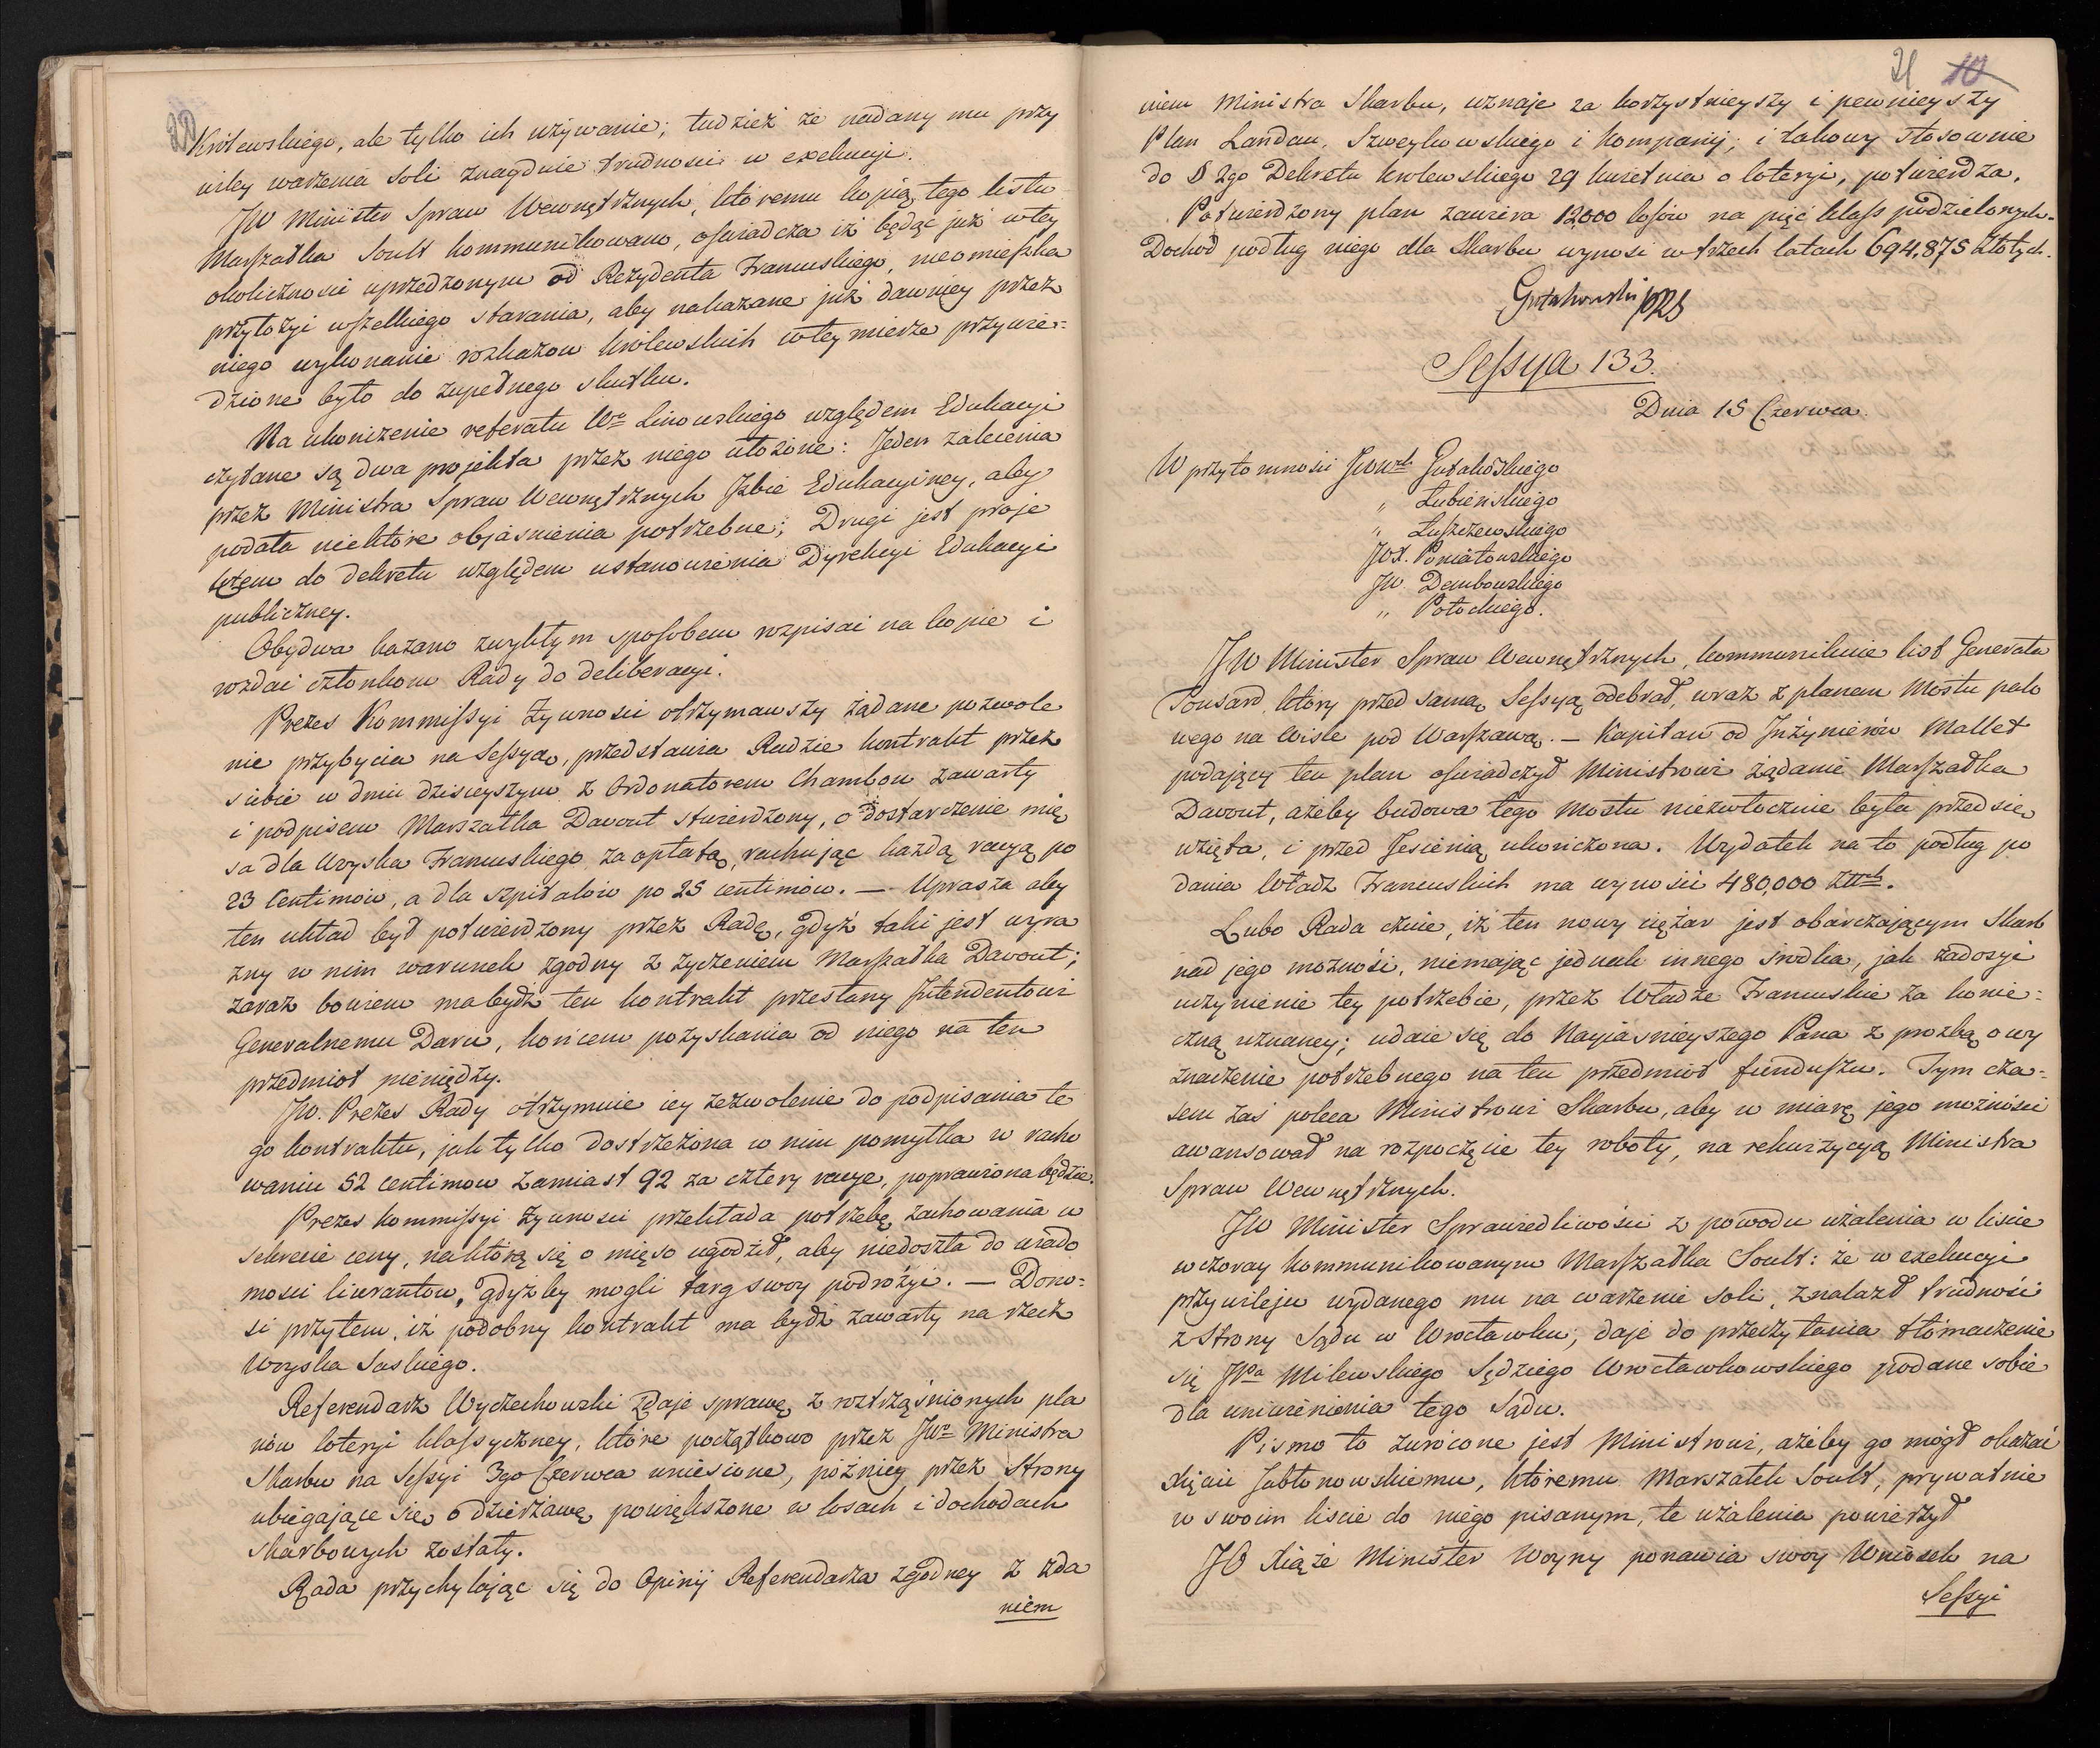 20
Królewskiego, ale tylko ich używanie; tudzież że nadany mu przy
wiley warzenia soli znayduie trudności w exekucyi.
JW Minister Spraw Wewnętrznych, któremu kopią tego listu
Marszałka Soult kommunikowano, oświadcza iż będąc już w tey
okoliczności uprzedzonym od Rezydenta Francuskiego, nieomieszka
przyłożyć wszelkiego starania, aby nakazane już dawniey przez
niego wykonanie rozkazow królewskich w tey mierze przywie=
dzione było do zupełnego skutku.
Na ukończenie referatu Wo Linowskiego względem Edukacyi
czytane są dwa projekta przez niego ułożone: Jeden zalecenia
przez Ministra Spraw Wewnętrznych Izbie Edukacyiney, aby
podała niektóre objaśnienia potrzebne; Drugi jest proje
ktem do dekretu względem ustanowienia Dyrekcyi Edukacyi
publiczney.
Obydwa kazano zwykłym sposobem rozpisać na kopie i
rozdać członkom Rady do deliberacyi.
Prezes Kommissyi Żywności otrzymawszy żądane pozwole
nie przybycia na Sessyą, przedstawia Radzie kontrakt przez
siebie w dniu dzisieyszym z Ordonatorem Chambon zawarty
i podpisem Marszałka Davout stwierdzony, o dostarczenie mię
sa dla Woyska Francuskiego za opłatą, rachując każdą racyą po
23 Centimów, a dla szpitalów po 25 centimów. — Uprasza aby
ten układ był potwierdzony przez Radę, gdyż taki jest wyra
zny w nim warunek zgodny z życzeniem Marszałka Davout;
zaraz bowiem ma bydź ten kontrakt przesłany Intendentowi
Generalnemu Daru, końcem pozyskania od niego na ten
przedmiot pieniędzy.
JW. Prezes Rady otrzymuie iey zezwolenie do podpisania te
go kontraktu, jak tylko dostrzeżona w nim pomyłka w racho
waniu 52 centimow zamiast 92 za cztery racye, poprawiona będzie.
Prezes Kommissyi Żywności przekłada potrzebę zachowania w
sekrecie ceny, na którą się o mięso ugodził, aby niedoszła do wiado
mości liwrantow, gdyżby mogli targ swoy podrożyć. — Dono=
si przytem, iż podobny kontrakt ma bydź zawarty na rzecz
Woyska Saskiego.
Referendarz Wyczechowski zdaje sprawę z roztrząśnionych pla
nów loteryi klassyczney, które początkowo przez JWo Ministra
Skarbu na Sessyi 3go Czerwca wniesione, póżniey przez Strony
ubiegające się o dzierżawę powiększone w losach i dochodach
skarbowych zostały.
Rada przychylając się do Opinij Referendarza zgodney z zda
niem
21 10
niem Ministra Skarbu, uznaje za korzystnieyszy i pewnieyszy
Plan Landau, Szweykowskiego i Kompanij; i takowy stosownie
do § 2go Dekretu Krolewskiego 29 kwietnia o loteryi, potwierdza.
Potwierdzony plan zawiera 12,000 losów na pięć klass podzielonych.
Dochod podług niego dla Skarbu wynosi w trzech latach 694,875 złotych.
Gutakowski PRS
Sessya 133.
Dnia 15 Czerwca.
W przytomności JWWch Gutakowskiego
" Łubieńskiego
" Łuszczewskiego
JOX. Poniatowskiego
JW. Dembowskiego
" Potockiego.
JW Minister Spraw Wewnętrznych, kommunikuie list Generała
Pousard, który przed samą Sessyą odebrał, wraz z planem Mostu palo
wego na Wiśle pod Warszawą. — Kapitan od Inżynierów Mallet
podający ten plan oświadczył Ministrowi żądanie Marszałka
Davout, ażeby budowa tego Mostu niezwłocznie była przedsię
wzięta, i przed Jesienią ukończona. Wydatek na to podług po
dania Władz Francuskich ma wynosić 480,000 Złtch.
Lubo Rada czuie, iż ten nowy ciężar jest obarczającym Skarb
nad jego możność, niemając jednak innego środka, jak zadosyć
uczynienie tey potrzebie, przez Władze Francuskie za konie=
czną uznaney; udaie się do Nayiaśnieyszego Pana z prozbą o wy
znaczenie potrzebnego na ten przedmiot funduszu. Tym cza=
sem zaś poleca Ministrowi Skarbu, aby w miarę jego możności
awansował na rozpoczęcie tey roboty, na rekwizycyą Ministra
Spraw Wewnętrznych.
JW Minister Sprawiedliwości z powodu użalenia w liście
wczoray kommunikowanym Marszałka Soult: że w exekucyi
przywileju wydanego mu na warzenie soli, znalazł trudności
z Strony Sądu w Wrocławku, daje do przeczytania tłómaczenie
się JPa Milewskiego Sędziego Wrocławkowskiego podane sobie
dla uniewinienia tego Sądu.
Pismo to zwrócone jest Ministrowi, ażeby go mógł okazać
Xięciu Jabłonowskiemu, któremu Marszałek Soult, prywatnie
w swoim liście do niego pisanym, te użalenia powierzył
JO Xiąże Minister Woyny ponawia swoy Wniosek na
Sessyi